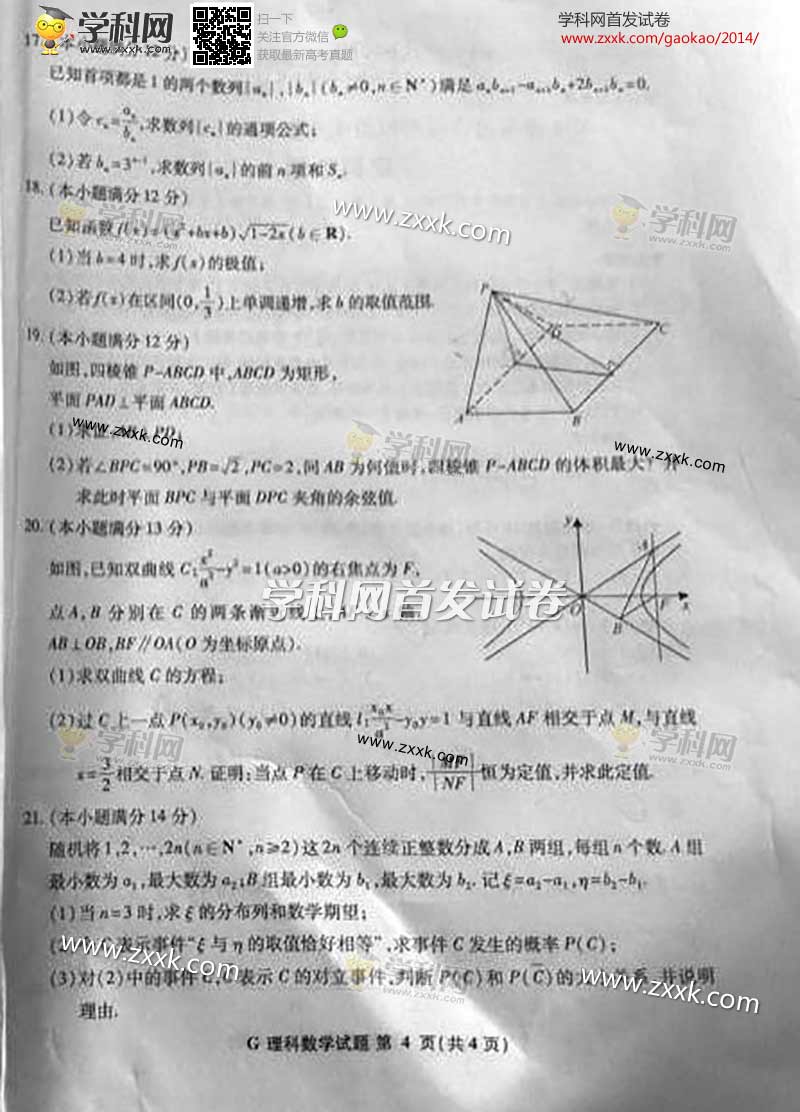 学科网
www.zxxk.com
扫一下
关注官方微信
获取最新高考真题
学科网首发试卷
www.zxxk.com/gaokao/2014/
17. 12分)
已知首项都是1的两个数列{aₙ},{bₙ}(bₙ≠0,n∈N*)满足aₙbₙ₊₁-aₙ₊₁bₙ+2bₙ₊₁bₙ=0.
(1)令cₙ=aₙ/bₙ,求数列{cₙ}的通项公式;
(2)若bₙ=3ⁿ⁻¹,求数列{aₙ}的前n项和Sₙ.
18.(本小题满分12分)
学科网
www.zxxk.com
www.zxxk.com
学科网
www.zxxk.com
已知函数f(x)=(x²+bx+b)√1-2x(b∈R).
(1)当b=4时,求f(x)的极值;
(2)若f(x)在区间(0,1/3)上单调递增,求b的取值范围.
P
C
A
B
19.(本小题满分12分)
如图,四棱锥P-ABCD中,ABCD为矩形,
平面PAD⊥平面ABCD.
(1)求 PD;
www.zxxk.com
学科网
www.zxxk.com
www.zxxk.com
(2)若∠BPC=90°,PB=√2,PC=2,问AB为何值时,四棱锥P-ABCD的体积最大?
求此时平面BPC与平面DPC夹角的余弦值.
20.(本小题满分13分)
y
A
O
F
x
B
如图,已知双曲线C:x²/a²-y²=1(a>0)的右焦点为F,
学科网首发试卷
点A,B分别在C的两条渐
AB⊥OB,BF∥OA(O为坐标原点).
(1)求双曲线C的方程;
(2)过C上一点P(x₀,y₀)(y₀≠0)的直线l:x₀x/a²-y₀y=1与直线AF相交于点M,与直线
学科网
www.zxxk.com
www.zxxk.com
学科网
www.zxxk.com
x=3/2相交于点N.证明:当点P在C上移动时,|MF|/|NF|恒为定值,并求此定值.
21.(本小题满分14分)
随机将1,2,…,2n(n∈N*,n≥2)这2n个连续正整数分成A,B两组,每组n个数.A组
最小数为a₁,最大数为a₂;B组最小数为b₁,最大数为b₂.记ξ=a₂-a₁,η=b₂-b₁.
(1)当n=3时,求ξ的分布列和数学期望;
表示事件“ξ与η的取值恰好相等”,求事件C发生的概率P(C);
www.zxxk.com
学科网
www.zxxk.com
www.zxxk.com
(3)对(2)中的事件C,C̄表示C的对立事件,判断P(C)和P(C̄)的 系,并说明
理由.
G 理科数学试题 第 4 页(共4页)